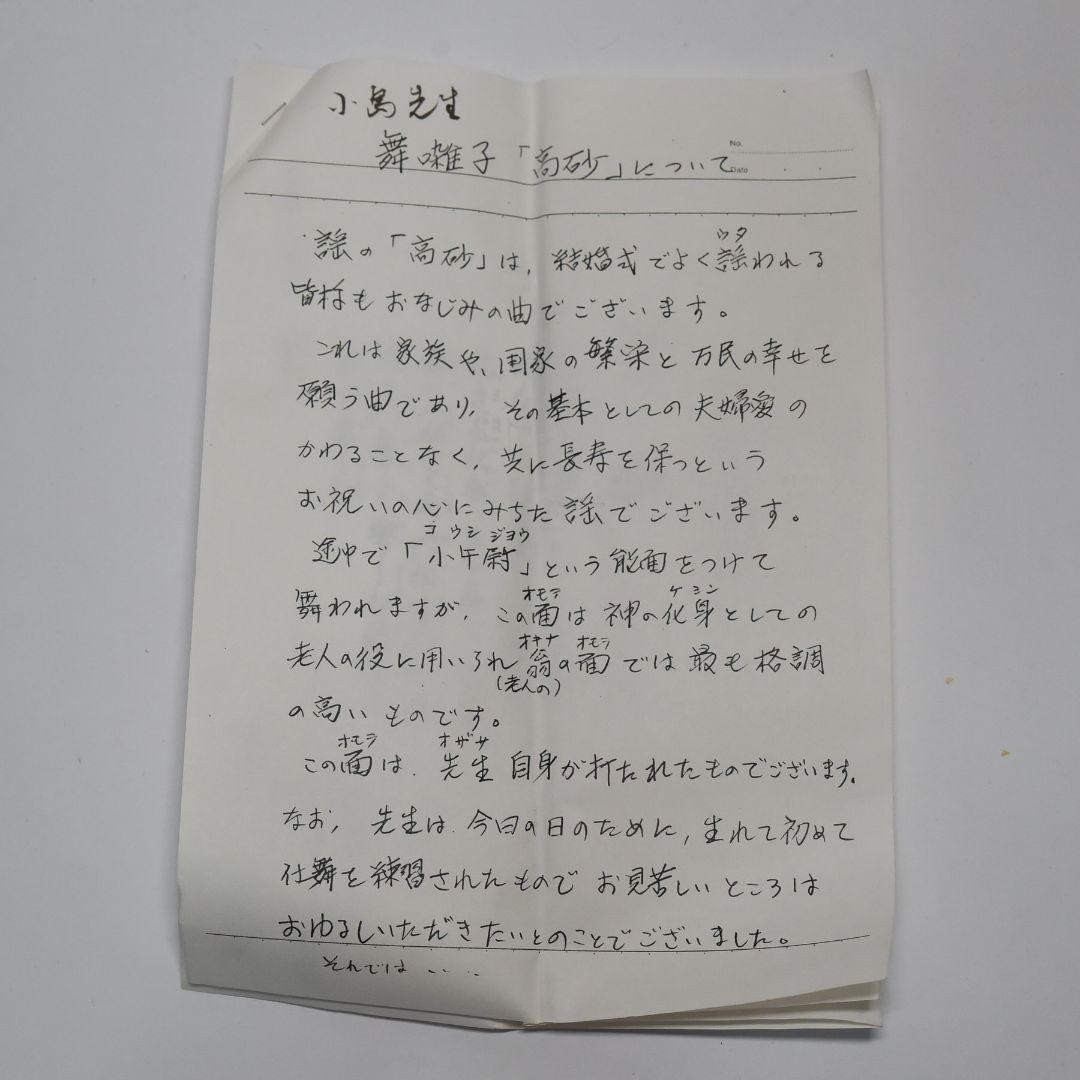 小島先生
舞囃子「高砂」について
No.
Date
謡の「高砂」は、結婚式でよく謡われる
ウタ
皆様もおなじみの曲でございます。
これは家族や、国家の繁栄と万民の幸せを
願う曲であり、その基本としての夫婦愛の
かわることなく、共に長寿を保つという
お祝いの心にみちた謡でございます。
コウシジョウ
途中で「小牛尉」という能面をつけて
オモテ ケシン
舞われますが、この面は神の化身としての
オキナ オモテ
老人の役に用いられ翁の面では最も格調
(老人の)
の高いものです。
オモテ オザサ
この面は、先生自身が打たれたものでございます。
なお、先生は今日の日のために、生れて初めて
仕舞を練習されたもので お見苦しいところは
おゆるしいただきたいとのことでございました。
それでは....